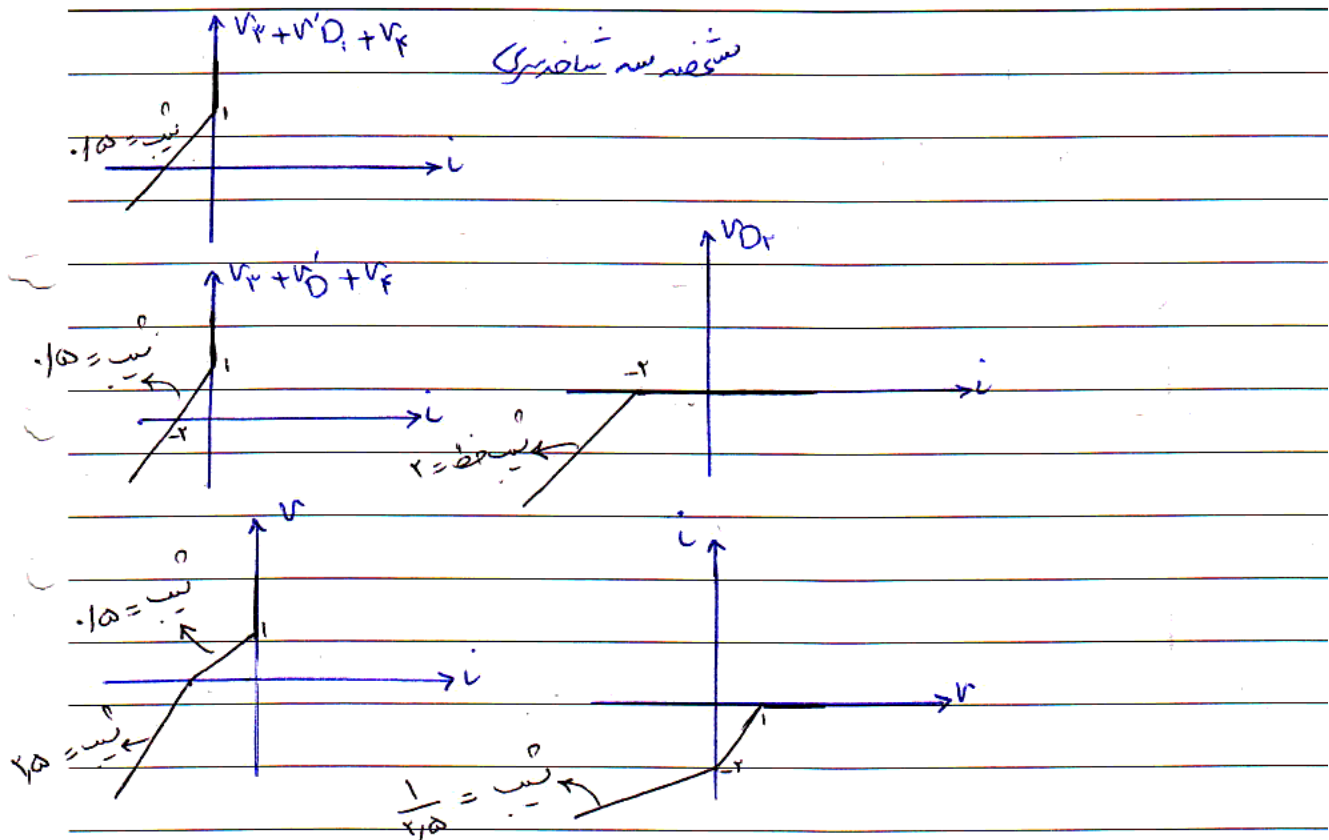 V۳ + V'D۱ + V۴
مشخصه سه شاخه سری
شیب = ۰/۵
۱
i
VD۲
V۳ + V'D + V۴
شیب = ۰/۵
۱
-۲
i
-۲
i
شیب خط = ۲
V
i
شیب = ۰/۵
۱
i
V
۱
شیب = ۲,۵
-۲
شیب = ۱/۲,۵